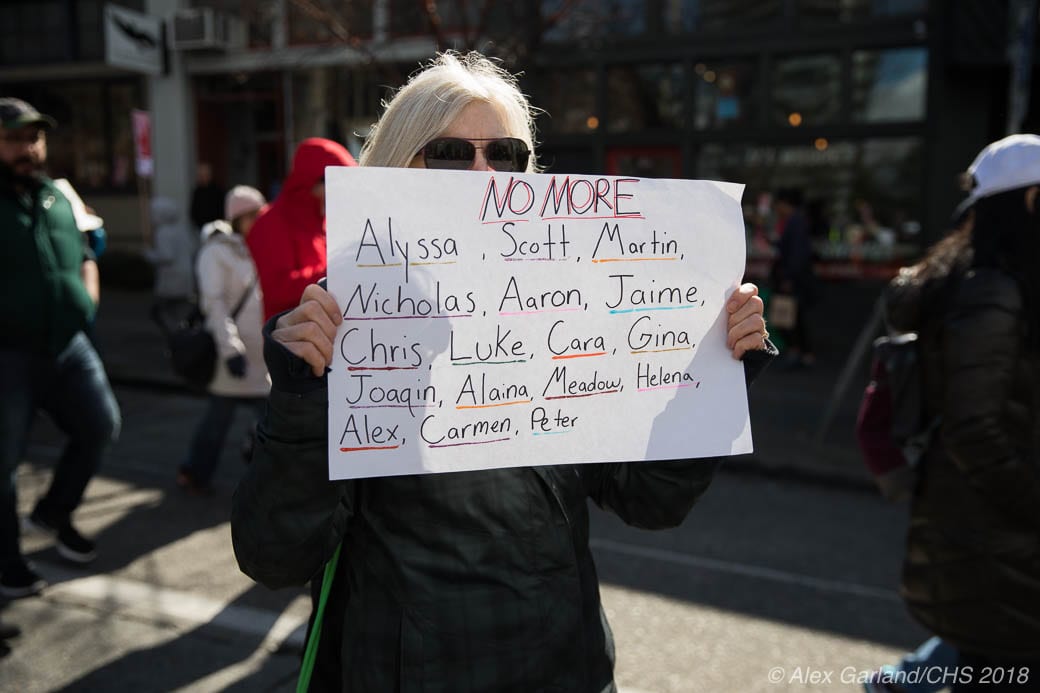 NO MORE
Alyssa, Scott, Martin,
Nicholas, Aaron, Jaime,
Chris, Luke, Cara, Gina,
Joaqin, Alaina, Meadow, Helena,
Alex, Carmen, Peter
© Alex Garland/CHS 2018